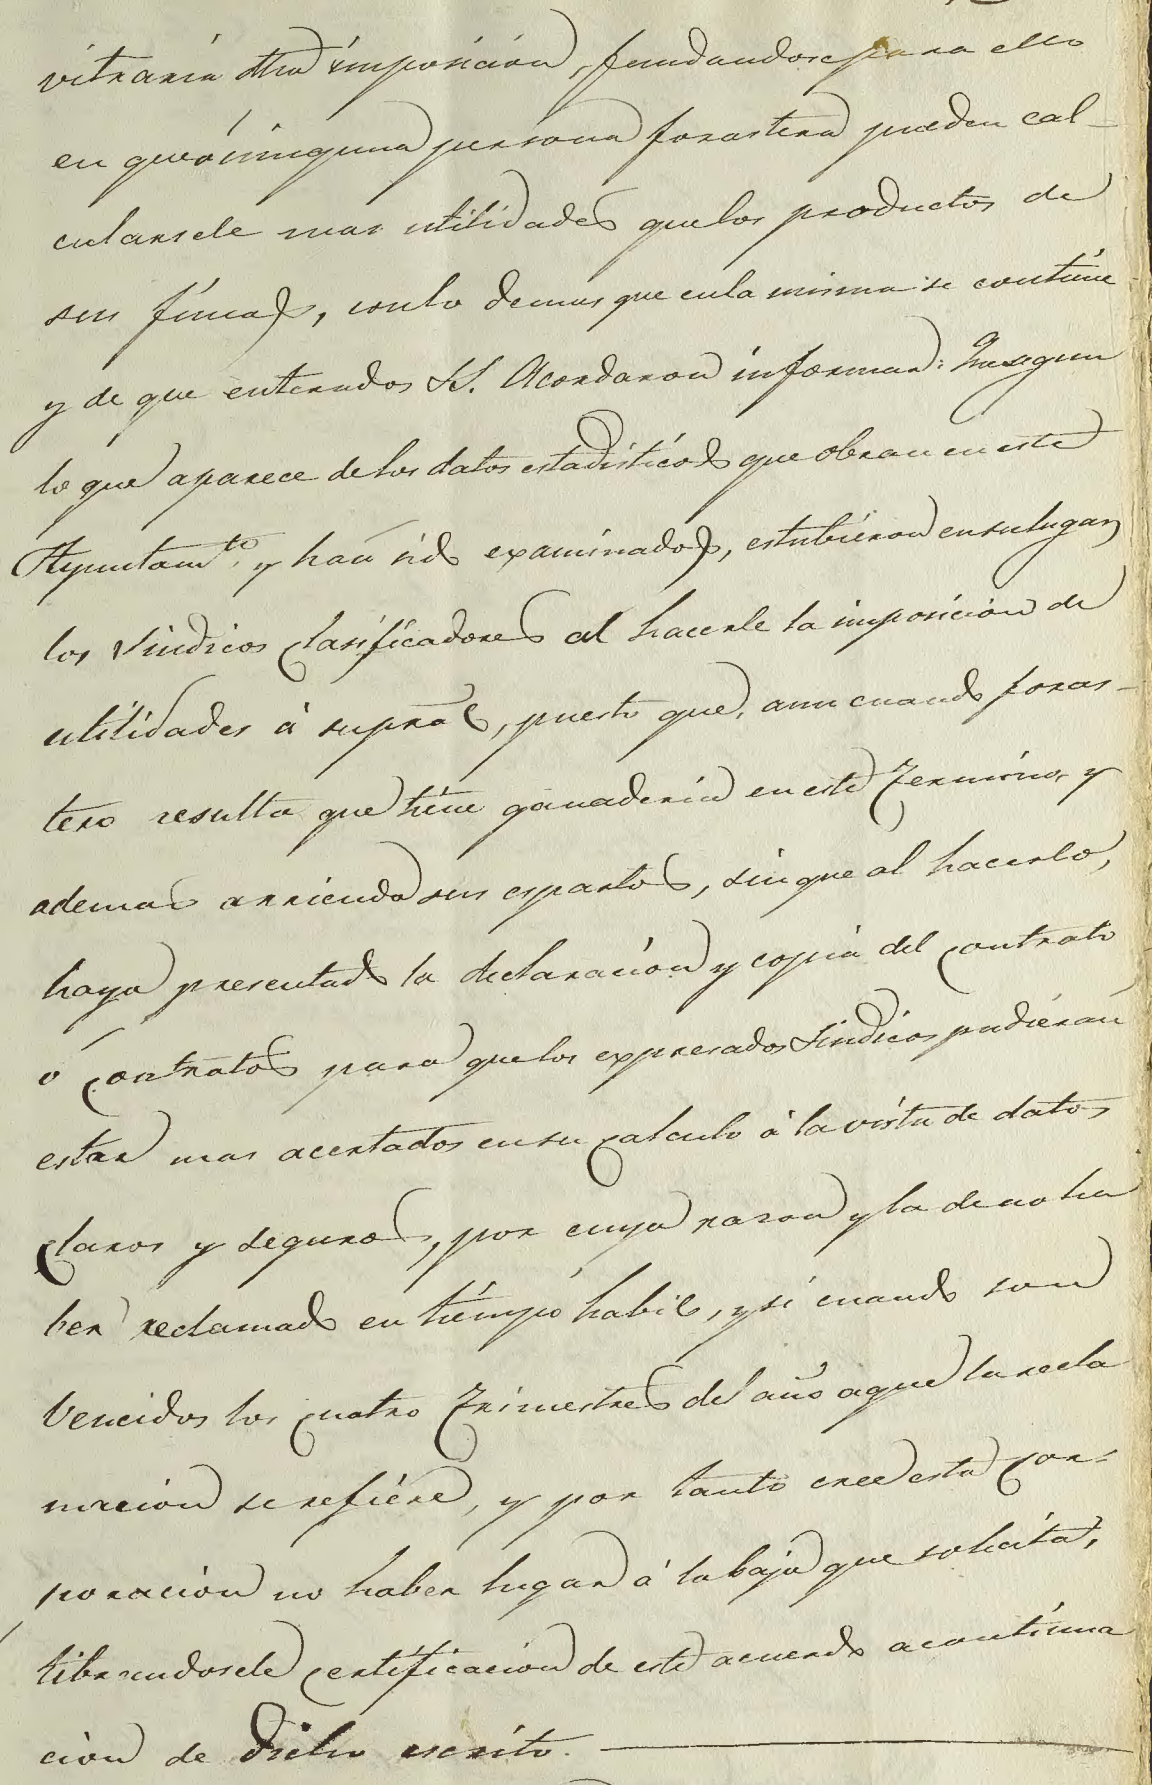 vitraria dha imposicion, fundandose para ello
en que á ninguna persona forastera pueden cal-
cularsele mas utilidades que los productos de
sus fincas, con lo demas que en la misma se contiene
y de que enterados SS. Acordaron informar: Que segun
lo que aparece de los datos estadisticos que obran en este
Ayuntamto. y han sido examinados, estubieron en su lugar
los Sindicos clasificadores al hacerle la imposicion de
utilidades á su pral, puesto que, aun cuando foras-
tero resulta que tiene ganaderia en este Termino, y
ademas arrienda sus espartos, sin que al hacerlo,
haya presentado la declaracion y copia del contrato
ó contratos para que los expresados Sindicos pudieran
estar mas acertados en su calculo á la vista de datos
claros y seguros, por cuya razon y la de no ha
ber reclamado en tiempo habil, y si cuando son
vencidos los cuatro Trimestres del año a que la recla
macion se refiere, y por tanto cree esta Cor-
poracion no haber lugar á la baja que solicita,
librandosele certificacion de este acuerdo a continua
cion de dicho escrito.